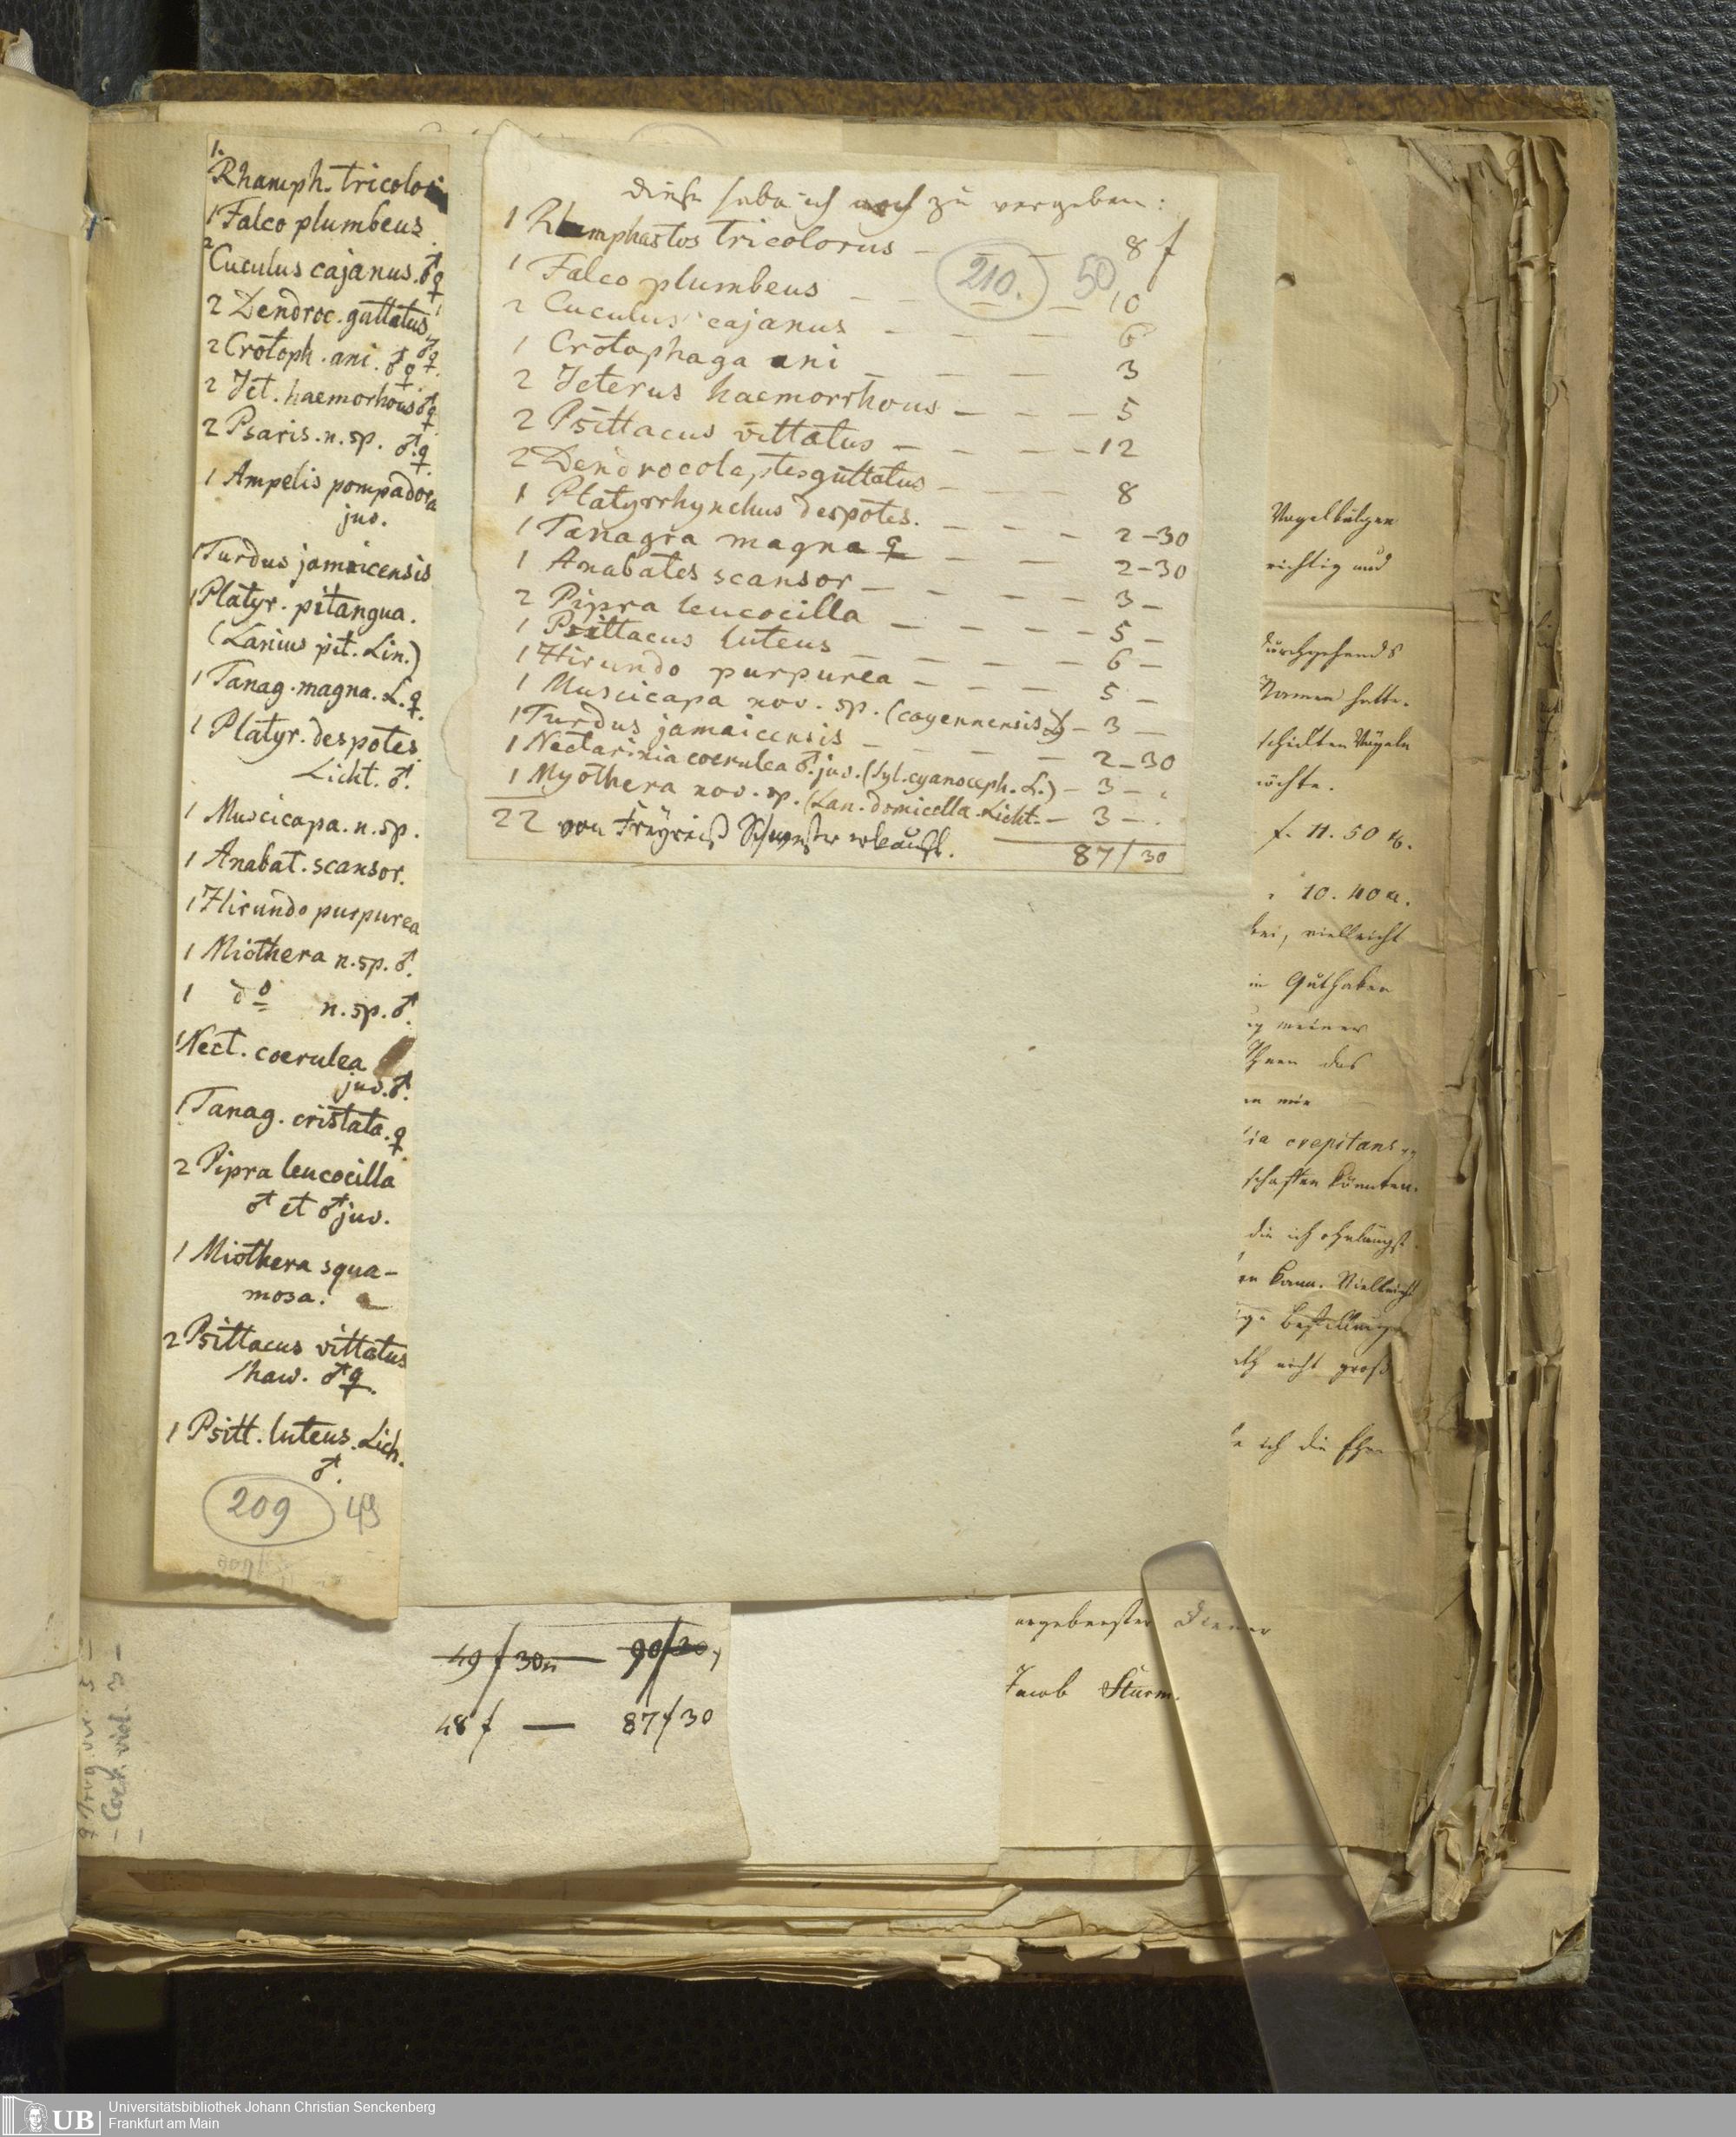 1.
Rhamph. tricolor
1 Falco plumbeus
2
Cuculus cajanus. ♂♀
2 Dendroc. guttatus ♂♀.
2 Crotoph. ani. ♂♀
2 Ict. haemorhous ♂♀
2 Psaris. n. sp. ♂.♀.
1 Ampelis pompadora
juv.
1 Turdus jamaicensis
1 Platyr. pitangua.
(Lanius pit. Lin.)
1 Tanag. magna. L. ♀.
1 Platyr. despotes
Licht. ♂.
1 Muscicapa. n. sp.
1 Anabat. scansor.
1 Hirundo purpurea
1 Miothera n. sp. ♂.
1 do n. sp. ♂.
1 Nect. coerulea
juv. ♂.
1 Tanag. cristata. ♀.
2 Pipra leucocilla
♂ et ♂ juv.
1 Miothera squa-
mosa.
2 Psittacus vittatus
Shaw. ♂♀.
1 Psitt. luteus. Lich.
♂.
209 49
Diese habe ich noch zu vergeben:
1 Rhamphastos tricolorus — — 8 f
210. 50
1 Falco plumbeus — — — 10
2 Cuculus cajanus — — — 6
1 Crotophaga ani — — — 3
2 Icterus haemorrhous — — — 5
2 Psittacus vittatus — — — 12
2 Dendrocolaptes guttatus — — 8
1 Platyrrhynchus despotes. — — — 2-30
1 Tanagra magna ♀ — — 2-30
1 Anabates scansor — — — — 3 —
2 Pipra leucocilla — — — — 5 —
1 Psittacus luteus — — — — 6 —
1 Hirundo purpurea — — — 5 —
1 Muscicapa nov. sp. (cayennensis L) — 3 —
1 Turdus jamaicensis — — — — 2-30
1 Nectarinia coerulea ♂. juv. (Syl. cyanoceph. L.) — 3 —
1 Myothera nov. sp. (Lan. domicella. Licht. — 3 —
22 von Freyreiß Schwester erkauft. 87/30
Vogelbälgen
richtig und
durchgehends
Namen hatte.
schickten Vögeln
möchte.
f. 11. 50 x.
10. 40 x.
bei, vielleicht
in Guthaben
meiner
Ihnen das
en mir
ia crepitans
schaffen könnten.
die ich ohnlängst
en kann. Vielleicht
Bestellungen
nicht groß
ich die Ehre
ergebenster Diener
Jacob Sturm.
49 f 30 — 90/30
48 f — 87 f 30